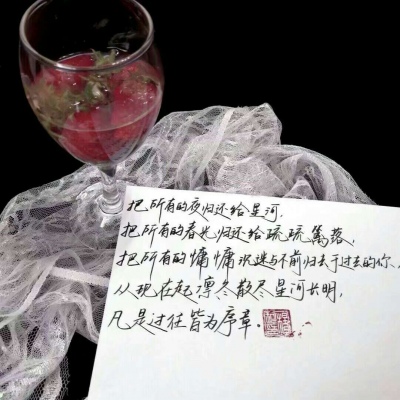 把所有的夜归还给星河,
把所有的春光归还给疏疏篱落,
把所有的慵慵沉迷与不前归去于过去的你、
从现在起凛冬散尽星河长明,
凡是过往皆为序章.